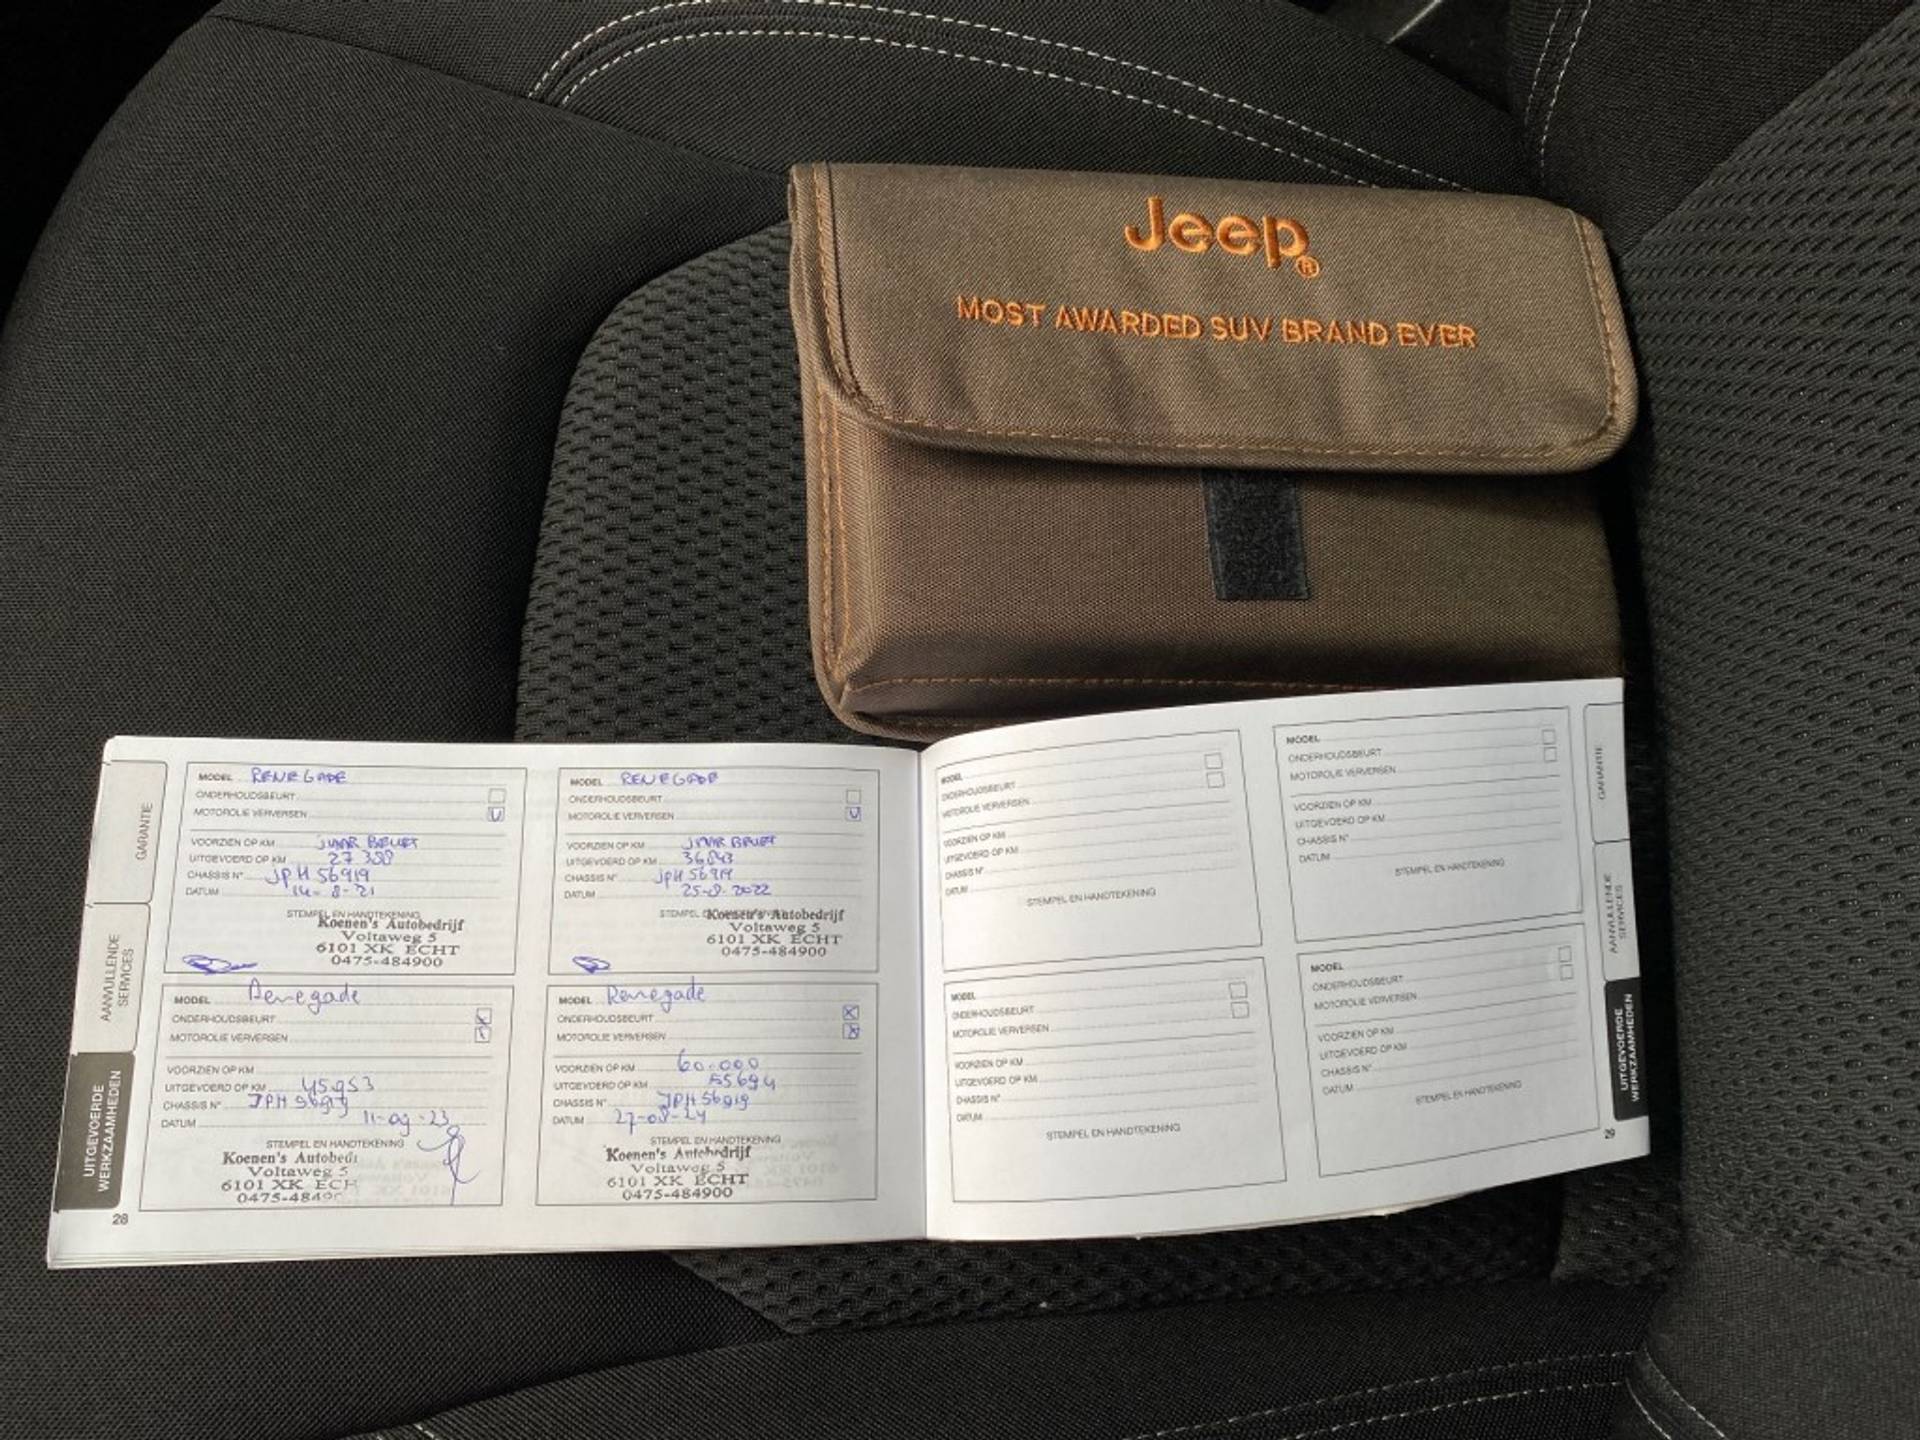 Jeep®
MOST AWARDED SUV BRAND EVER
GARANTIE
AANVULLENDE SERVICES
UITGEVOERDE WERKZAAMHEDEN
MODEL RENEGADE
ONDERHOUDSBEURT
MOTOROLIE VERVERSEN V
VOORZIEN OP KM JAAR BEURT
UITGEVOERD OP KM 27 388
CHASSIS N° JPH 56919
DATUM 14-8-21
STEMPEL EN HANDTEKENING
Koenen's Autobedrijf
Voltaweg 5
6101 XK ECHT
0475-484900
MODEL RENEGADE
ONDERHOUDSBEURT
MOTOROLIE VERVERSEN V
VOORZIEN OP KM JAAR BEURT
UITGEVOERD OP KM 36843
CHASSIS N° JPH 56919
DATUM 25-8-2022
Koenen's Autobedrijf
Voltaweg 5
6101 XK ECHT
0475-484900
MODEL Renegade
ONDERHOUDSBEURT X
MOTOROLIE VERVERSEN
VOORZIEN OP KM
UITGEVOERD OP KM 45953
CHASSIS N° JPH 56919
DATUM 11-09-23
STEMPEL EN HANDTEKENING
Koenen's Autobedi
Voltaweg 5
6101 XK ECH
0475-4849
MODEL Renegade
ONDERHOUDSBEURT X
MOTOROLIE VERVERSEN X
VOORZIEN OP KM 60.000
UITGEVOERD OP KM 55694
CHASSIS N° JPH 56919
DATUM 27-08-24
STEMPEL EN HANDTEKENING
Koenen's Autobedrijf
Voltaweg 5
6101 XK ECHT
0475-484900
28
MODEL
ONDERHOUDSBEURT
MOTOROLIE VERVERSEN
VOORZIEN OP KM
UITGEVOERD OP KM
CHASSIS N°
DATUM
STEMPEL EN HANDTEKENING
MODEL
ONDERHOUDSBEURT
MOTOROLIE VERVERSEN
VOORZIEN OP KM
UITGEVOERD OP KM
CHASSIS N°
DATUM
STEMPEL EN HANDTEKENING
MODEL
ONDERHOUDSBEURT
MOTOROLIE VERVERSEN
VOORZIEN OP KM
UITGEVOERD OP KM
CHASSIS N°
DATUM
STEMPEL EN HANDTEKENING
MODEL
ONDERHOUDSBEURT
MOTOROLIE VERVERSEN
VOORZIEN OP KM
UITGEVOERD OP KM
CHASSIS N°
DATUM
STEMPEL EN HANDTEKENING
GARANTIE
AANVULLENDE SERVICES
UITGEVOERDE WERKZAAMHEDEN
29